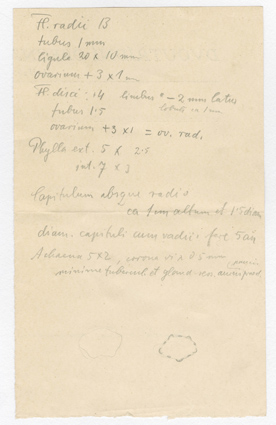 Fl. radii 13
tubus 1 mm
ligula 20 x 10 mm
ovarium + 3 x 1 mm
Fl. disci: 14 limbus 2 mm latus
tubus 1.5
ovarium + 3 x 1 = ov. rad.
Phylla ext. 5 x 2.5
int. 7 x 3
Capitulum absque radio
ca 1 cm altum et 1.5 diam
diam. capituli cum radiis fere 5 cm
Achaena 5x2, corona vix 0.5 mm
minime